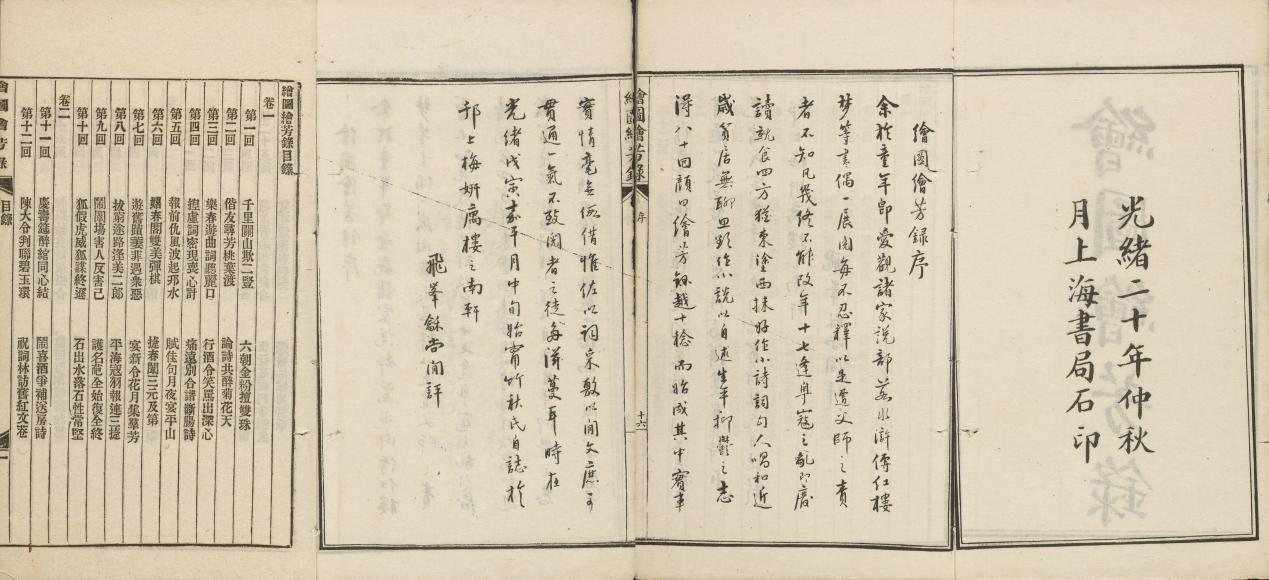 光緒二十年仲秋
月上海書局石印
繪圖繪芳錄序
余於童年即愛觀諸家說部若水滸傳紅樓
夢等書偶一展閱每不忍釋以是遭父師之責
者不知凡幾終不能改年十七逢粵寇之亂即廢
讀就食四方猶東塗西抹好作小詩詞與人唱和近
歲貧居無聊思戲作小說以自述生平抑鬱之志
得八十回顏曰繪芳錄越十稔而始成其中實事
繪圖繪芳錄 序 十六
實情毫無假借惟佐以詞采敷以閒文庶可
貫通一氣不致閱者之徒勞滋蔓耳時在
光緒戊寅嘉平月中旬始甯竹秋氏自誌於
邗上梅妍寓樓之南軒
飛峯穌尚閒評
繪圖繪芳錄目錄
卷一
第一回 千里關山欺二豎 六朝金粉擅雙珠
第二回 偕友尋芳桃葉渡 論詩共醉菊花天
第三回 樂春游曲詞聽麗口 行酒令笑罵出深心
第四回 捏虛詞密現喪心計 痛遠別合譜斷腸詩
第五回 報前仇風波起邗水 賦佳句月夜宴平山
第六回 鑼春閣雙美彈棋 捷春闈三元及第
第七回 游舊蹟萋菲遇衆惡 宴新令花月集羣芳
第八回 拔窮途路逢美二郎 平海寇羽報連三捷
第九回 鬧闈場害人反害己 護名葩全始復全終
第十回 狐假虎威狐謀終遲 石出水落石性常堅
卷二
第十一回 慶壽筵醉綰同心結 鬧喜酒爭補送房詩
第十二回 陳大令判聯碧玉環 祝詞林訪舊紅文巷
繪圖繪芳錄 目錄 一